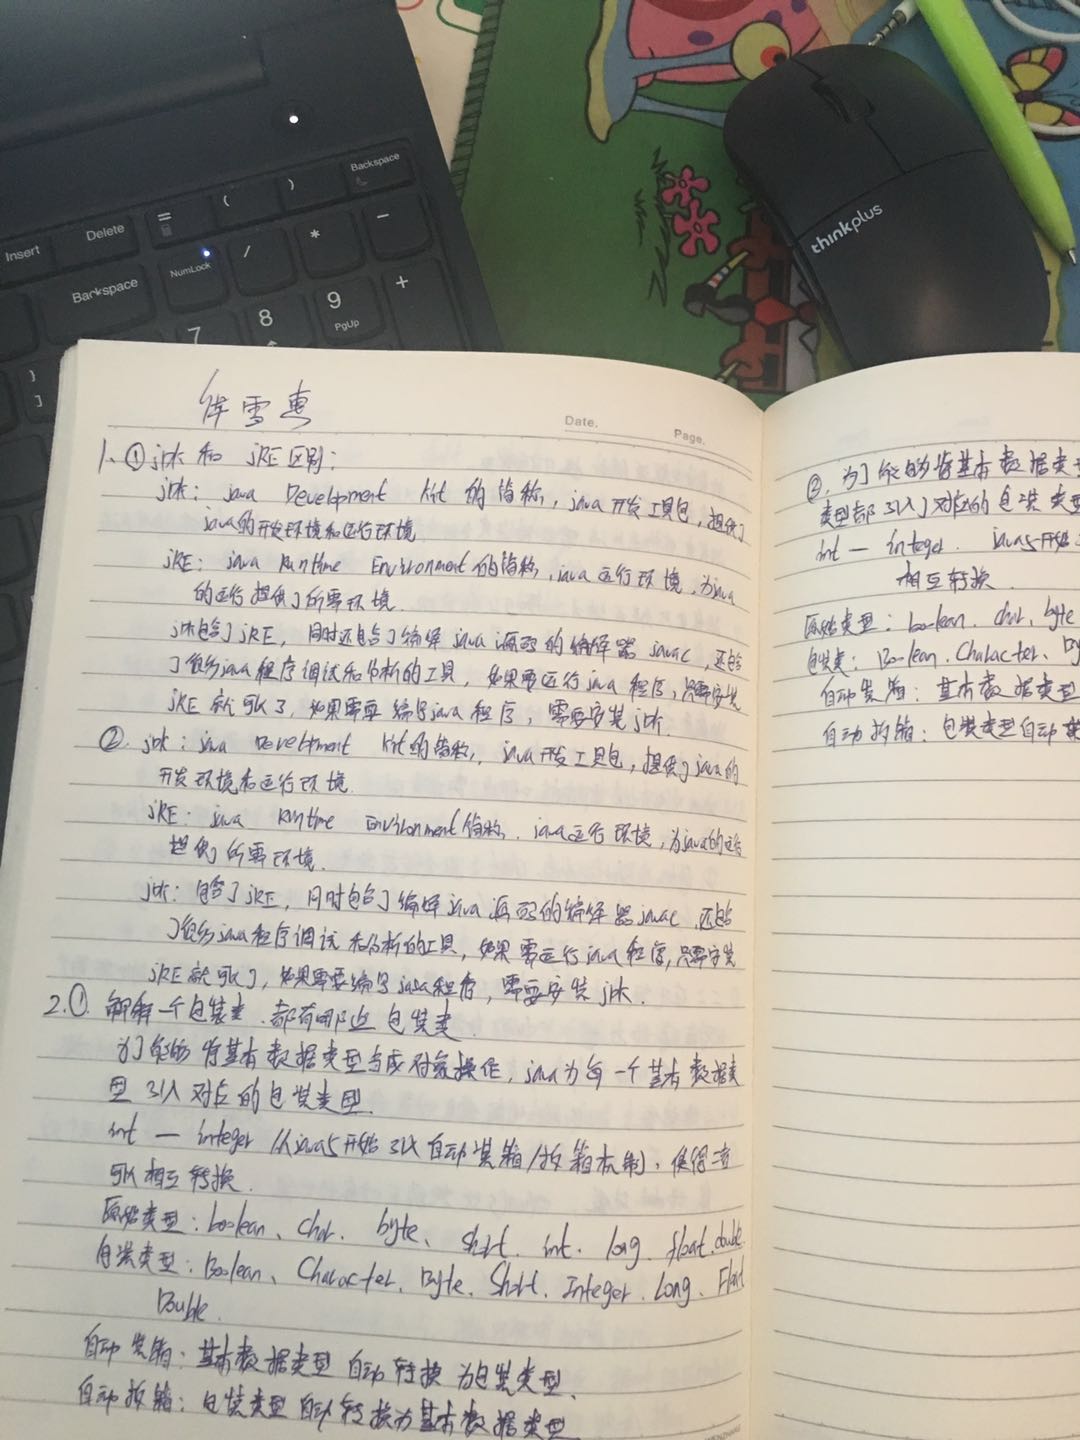 Backspace
Insert
Delete
=
(
)
Backspace
NumLock
/
*
-
7
8
9
PgUp
+
}
]
thinkplus
雪惠
Date.
Page.
1、① jdk 和 jRE区别：
jdk： java Development Kit 的简称，java开发工具包，提供了
java的开发环境和运行环境
jRE： java Runtime Environment的简称，java运行环境，为java
的运行提供了所需环境.
jdk包含了jRE，同时还包含了编译java源码的编译器 javac，还包含
了很多java程序调试和分析的工具，如果需运行java程序，只需安装
jRE就可以了，如果需要编写java程序，需要安装jdk.
② jdk：java Development Kit的简称，java开发工具包，提供了java的
开发环境和运行环境.
jRE： java Runtime Environment简称，java运行环境，为java的运行
提供了所需环境.
jdk：包含了jRE，同时包含了编译java源码的编译器javac，还包含
了很多java程序调试和分析的工具，如果需运行java程序，只需安装
jRE就可以了，如果需要编写java程序，需要安装jdk.
2.① 解释一个包装类.都有哪些包装类.
为了能够将基本数据类型当成对象操作，java为每一个基本数据类
型引入对应的包装类型.
int — integer 从java5开始引入自动装箱/拆箱机制，使得
可以相互转换.
原始类型：boolean、char、byte、short、int、long、float.double
包装类型：Boolean、Character、Byte、Short、Integer、Long、Float
Double.
自动装箱：基本数据类型自动转换为包装类型、
自动拆箱：包装类型自动转换为基本数据类型
②.为了能够将基本数据类
类型都引入了对应的包装类型
int — integer. java5开始
相互转换.
原始类型：boolean、char、byte
包装类：Boolean.Character、By
自动装箱：基本数据类型
自动拆箱：包装类型自动装